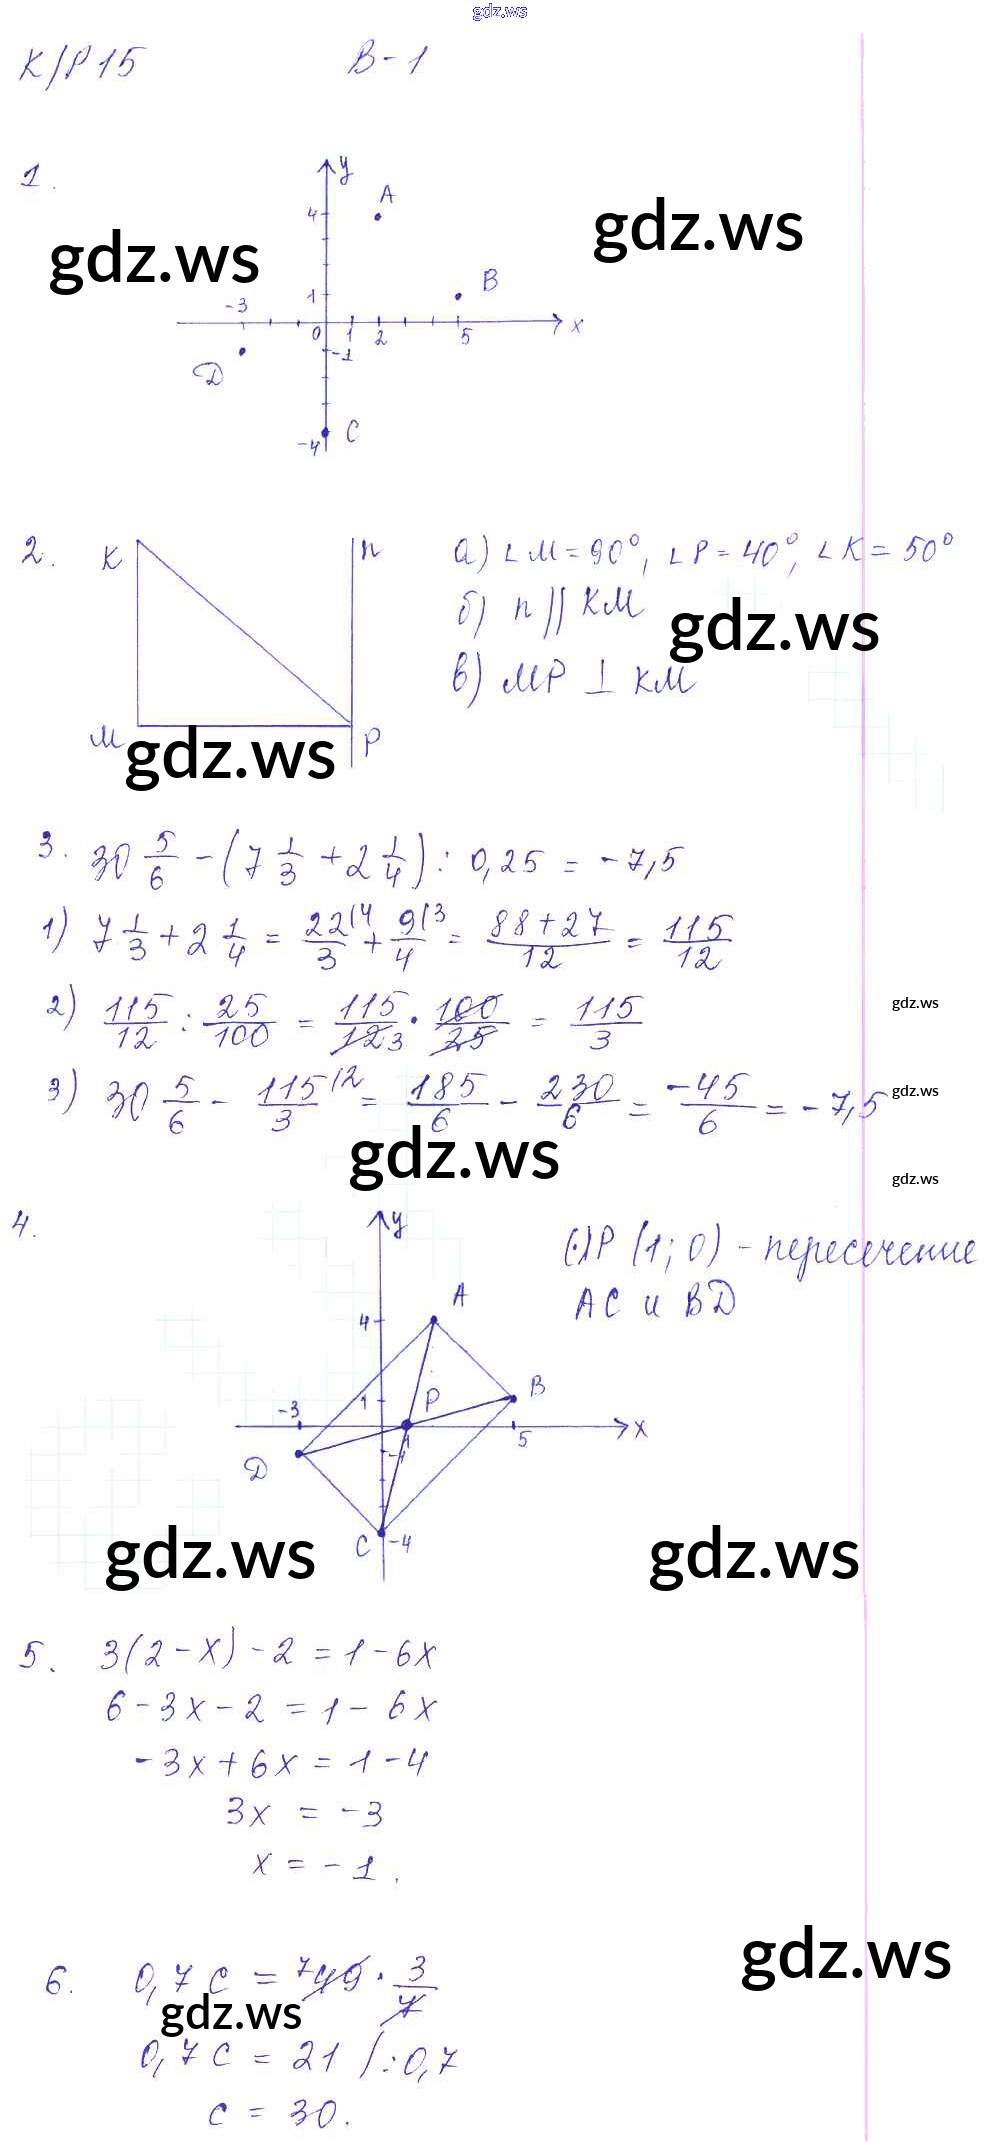 gdz.ws
К/Р 15 В-1
1.
y
A
4
gdz.ws
gdz.ws
B
-3
1
0 1 2 5 x
-1
D
C
-4
2. K n а) ∠M = 90°, ∠P = 40°, ∠K = 50°
б) n || KM
gdz.ws
в) MP ⊥ KM
M P
gdz.ws
3. 30 5/6 - (7 1/3 + 2 1/4) : 0,25 = -7,5
1) 7 1/3 + 2 1/4 = 22/3 (4 + 9/4 (3 = 88+27/12 = 115/12
2) 115/12 : 25/100 = 115/12 3 · 100/25 = 115/3
gdz.ws
3) 30 5/6 - 115/3 (2 = 185/6 - 230/6 = -45/6 = -7,5
gdz.ws
gdz.ws
gdz.ws
4.
y
(·)P (1; 0) - пересечение
AC и BD
A
4
B
1 P
-3
1 5 x
-1
D
C -4
gdz.ws
gdz.ws
5. 3(2-x) - 2 = 1 - 6x
6 - 3x - 2 = 1 - 6x
-3x + 6x = 1 - 4
3x = -3
x = -1.
gdz.ws
6. 0,7 c = 7 49 · 3/7
gdz.ws
0,7 c = 21 | : 0,7
c = 30.